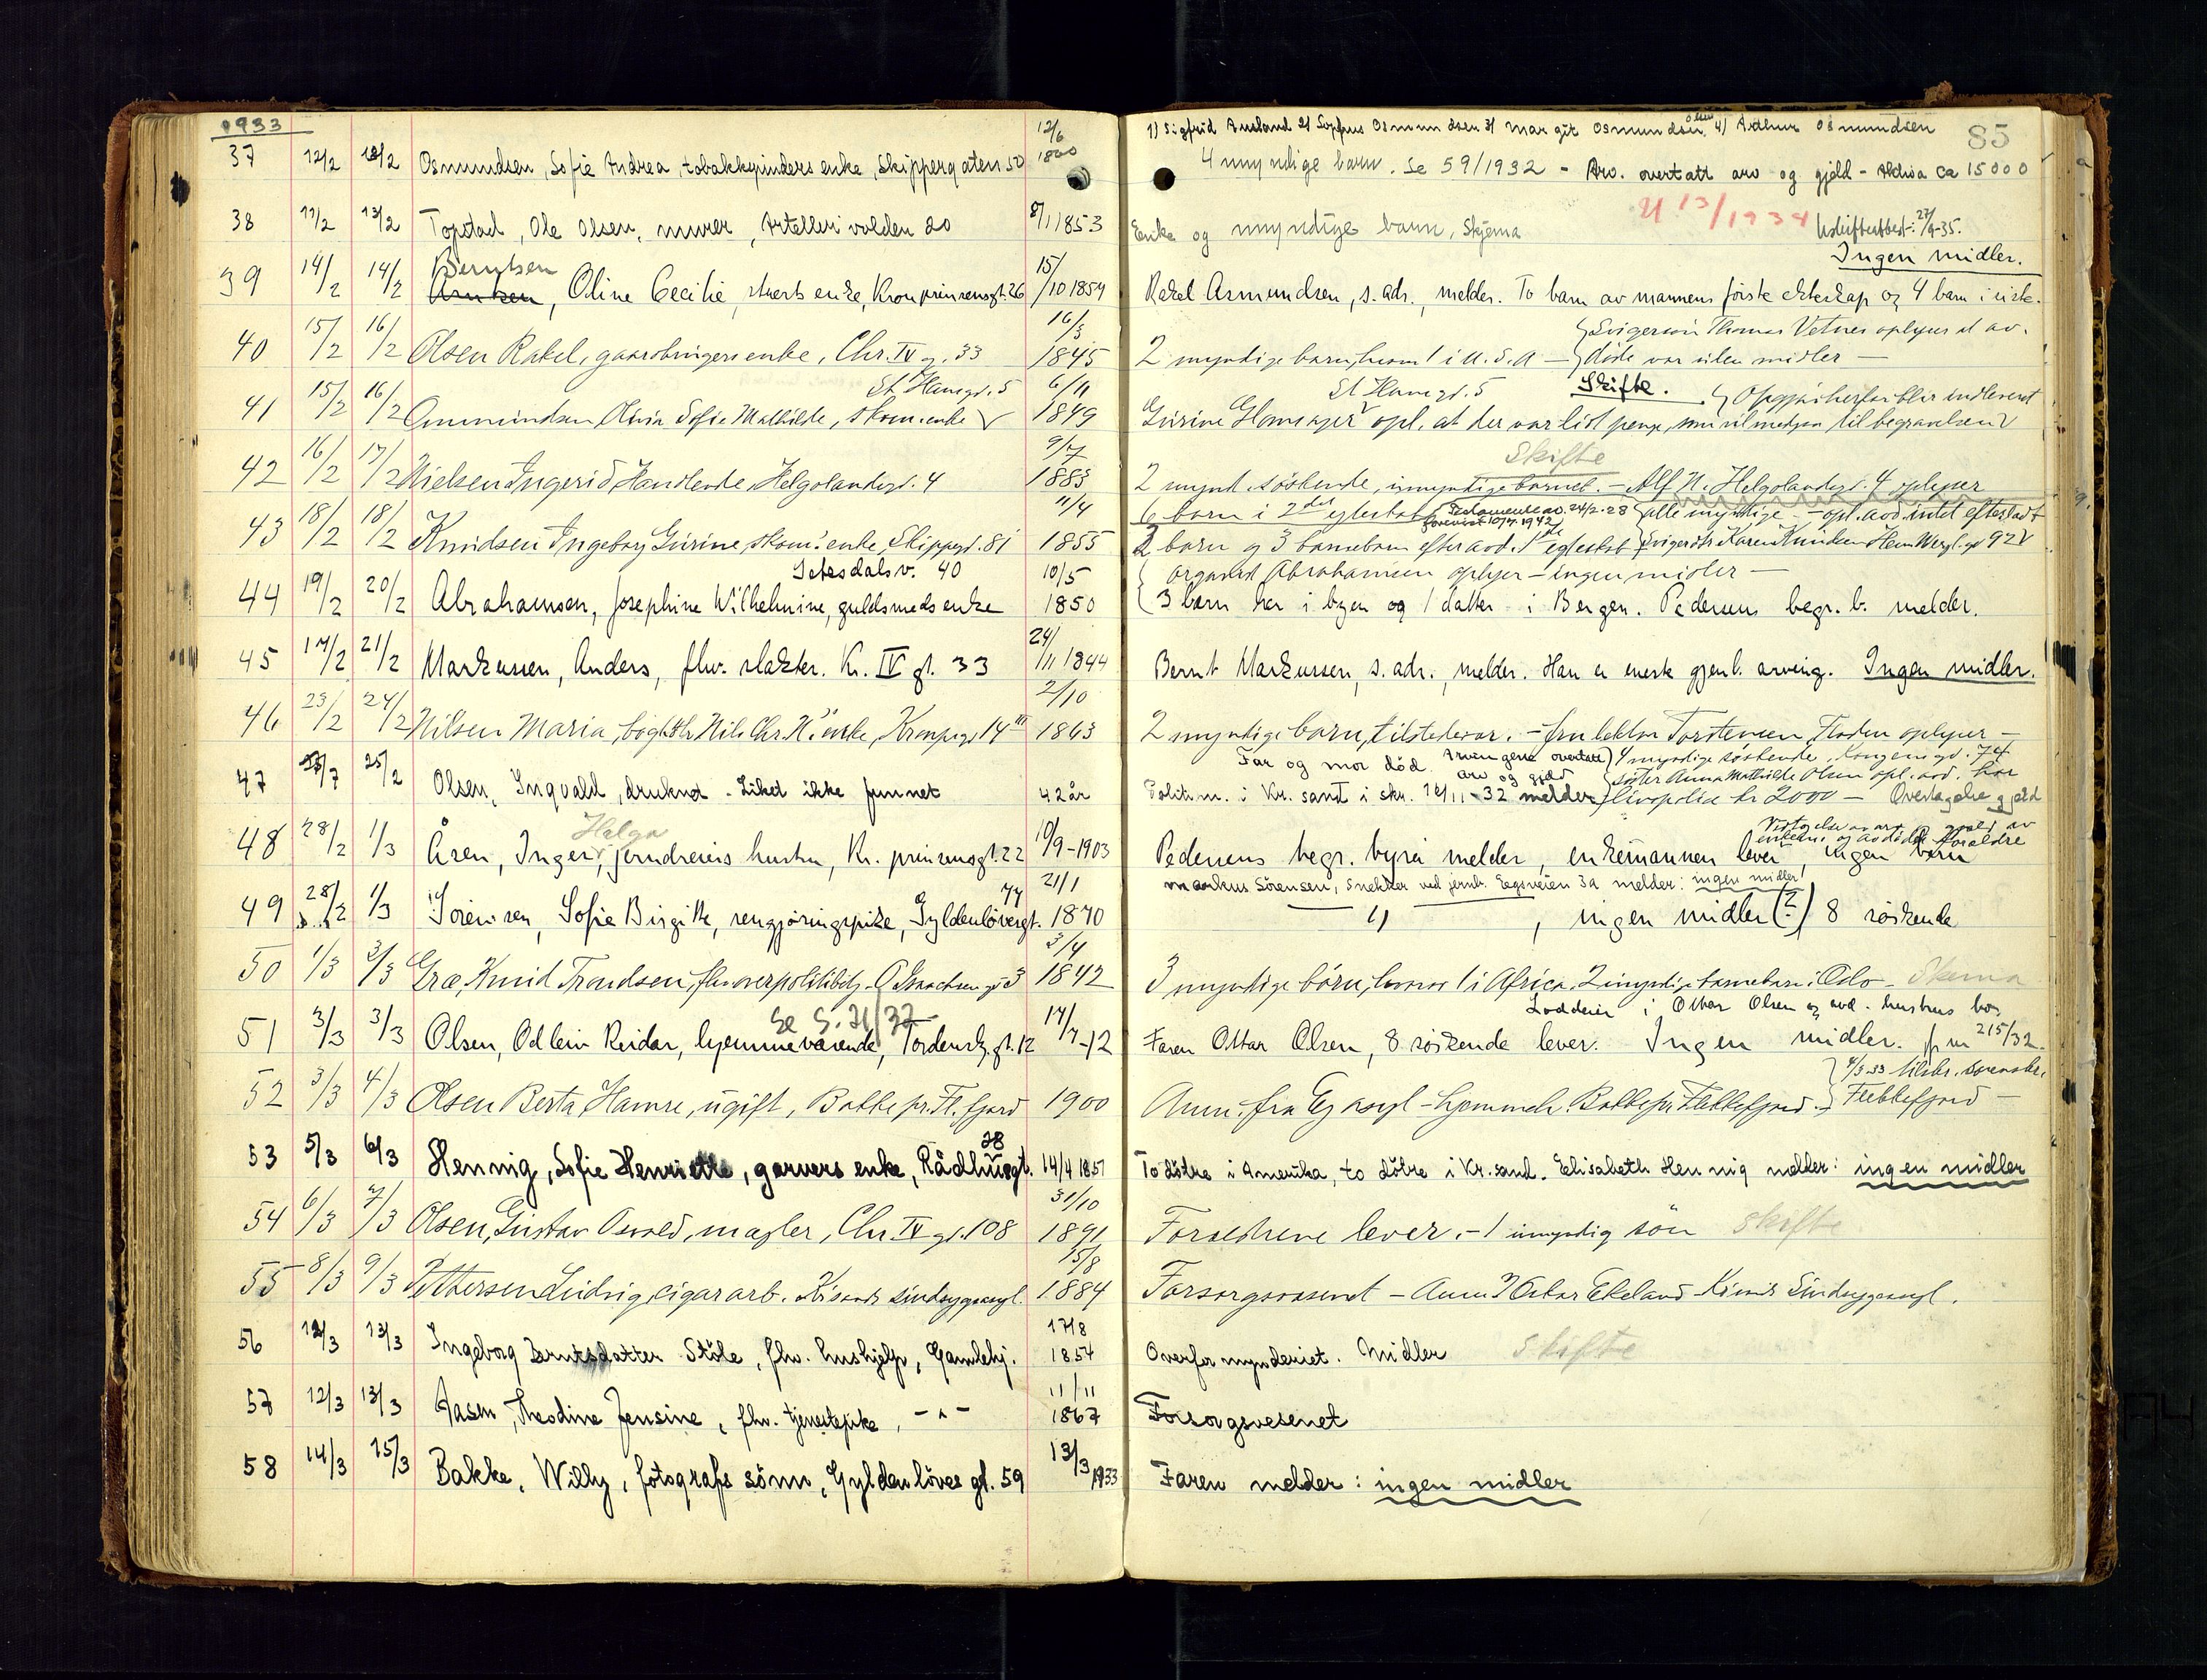 1933
1) Sigfrid Ausland 2) Sophus Osmundsen 3) Margit Osmundsen 4) Arthur Osmundsen 85
37 12/2 13/2 Osmundsen, Sofie Andrea, tobakkspinders enke, Skippergaten 50 12/6 1860 4 myndige barn. Se 59/1932 - Arv. overtatt arv og gjeld - Aktiva ca 15000
38 11/2 13/2 Topstad, Ole Olsen, murer, Artellerivolden 20 8/11 1853 Enke og myndige barn, Skjema U 13/1934 Uskifteattest: 27/4-35.
Ingen midler.
39 14/2 14/2 Berntsen, Oline Cecilie, stuerts enke, Kronprinsensgt. 26 15/10 1854 Rakel Asmundsen, s. adr., melder. To barn av mannens første ekteskap og 4 barn i siste.
40 15/2 16/2 Olsen Rakel, gaardbrugers enke, Chr. IV g. 33 16/3 1845 2 myndige barn, hvoraf 1 i U.S.A - Svigersøn Thomas Vetnes oplyser at av-
døde var uten midler -
St Hansgt. 5
41 15/2 16/2 Ommundsen Olivia Sofie Mathilde, skom. enke 6/11 1849 St Hansgt. 5 Skifte. Opgjør herfor blir indleveret
Gurine Homsager opl. at der var litt penge, som vil medgaa til begravelsen
Skifte
42 16/2 17/2 Nielsen Ingerid, Handlende, Helgolandsgt. 4 9/7 1883 2 mynd. søskende, umyndige barnet. - Alf N. Helgolandsgt. 4 oplyser
43 18/2 18/2 Knudsen Ingeborg Gurine, skom. enke, Skippergt. 81 11/4 1855 6 barn i 2det egteskab Testamente av. 24/2-28 forevist 10/7. 1942 alle myndige - opl. avd. intet efterladt
2 barn og 3 barnebarn efter avd. 1ste egteskab Svigerdtr Karen Knudsen Hen. Wergl. gt 92
Setesdalsv. 40
44 19/2 20/2 Abrahamsen, Josephine Wilhelmine, guldsmeds enke 10/5 1850 Abrahamsen oplyser - ingen midler -
3 barn her i byen og 1 datter i Bergen. Pedersens begr. b. melder.
45 17/2 21/2 Markussen, Anders, fhv. slakter. Kr. IV gt. 33 24/11 1844 Bernt Markussen, s. adr., melder. Han er eneste gjenl. arving. Ingen midler.
46 23/2 24/2 Nilsen Maria, bøghldr Nils Chr. N's enke, Kronpr.gt 14 2/10 1863 2 myndige barn, tilstedevær. - fru lektor Torstensen, Floden oplyser -
47 25/2 Olsen, Ingvald, druknet - Liket ikke funnet 42 år Far og mor død. Arvingene overtatt arv og gjeld 4 myndige søskende, Kongensgt. 74
Politim. i Kr. sand i skr. 16/11-32 melder søster Anna Mathilde Olsen opl. avd. har
livspolise kr 2000 - Overtagelse gjeld
48 28/2 1/3 Åsen, Inger Helga, jerndreiers hustru, Kr. prinsensgt. 22 10/9-1903 Pedersens begr. byrå melder, enkemannen lever, ingen barn
av arv og gjeld av enkem. og avdødes foreldre
49 28/2 1/3 Sørensen, Sofie Birgitte, rengjøringspike, Gyldenløvesgt. 77 21/1 1870 Markus Sørensen, snekker ved jernb. Egsveien 3a melder: ingen midler!
— " —, ingen midler (?) 8 søskende
50 1/3 3/3 Græ, Knud Trondsen, fhv. overpolitibetj. O. Isaachsens gt 3 3/4 1842 3 myndige børn, hvorav 1 i Africa. 2 umyndige barnebarn i Oslo - Skema
Se S. 21/32
51 3/3 3/3 Olsen, Odlein Reidar, hjemmeværende, Tordensk. gt. 12 17/7-12 Loddeier i Ottar Olsen og avd. hustrus bo,
Faren Ottar Olsen, 8 søskende lever. Ingen midler. jfr nr 215/32.
52 3/3 4/3 Olsen Berta Hamre, ugift, Bakke pr. Fl. fjord 1900 Anm. fra Eg asyl - hjemmeh. Bakke pr Flekkefjord. 4/3-33 tilskr. sorenskr. Flekkefjord -
53 5/3 6/3 Hennig, Sofie Henriette, garvers enke, Rådhusgt. 28 14/4 1857 To døtre i Amerika, to døtre i Kr.sand. Elisabeth Hennig melder: ingen midler
54 6/3 7/3 Olsen, Gustav Osvold, magler, Chr IV gt. 108 31/10 1891 Forældrene lever. - 1 umyndig søn Skifte
55 8/3 9/3 Pettersen Ludvig, cigararb. Kr.sands sindsygeasyl. 15/8 1884 Forsorgsvæsenet - Anm. Oskar Ekeland Kr.sands Sindsygeasyl.
56 12/3 13/3 Ingeborg Berntsdatter Støle, fhv. hushjelp, Gamlehj. 17/8 1854 Overformynderiet. Midler Skifte
57 12/3 13/3 Aasen, Theodine Jensine, fhv. tjenestepike, - " - 11/11 1867 Forsorgsvesenet
58 14/3 15/3 Bakke, Willy, fotografs sønn, Gyldenløves gt. 59 13/3 1933 Faren melder: ingen midler